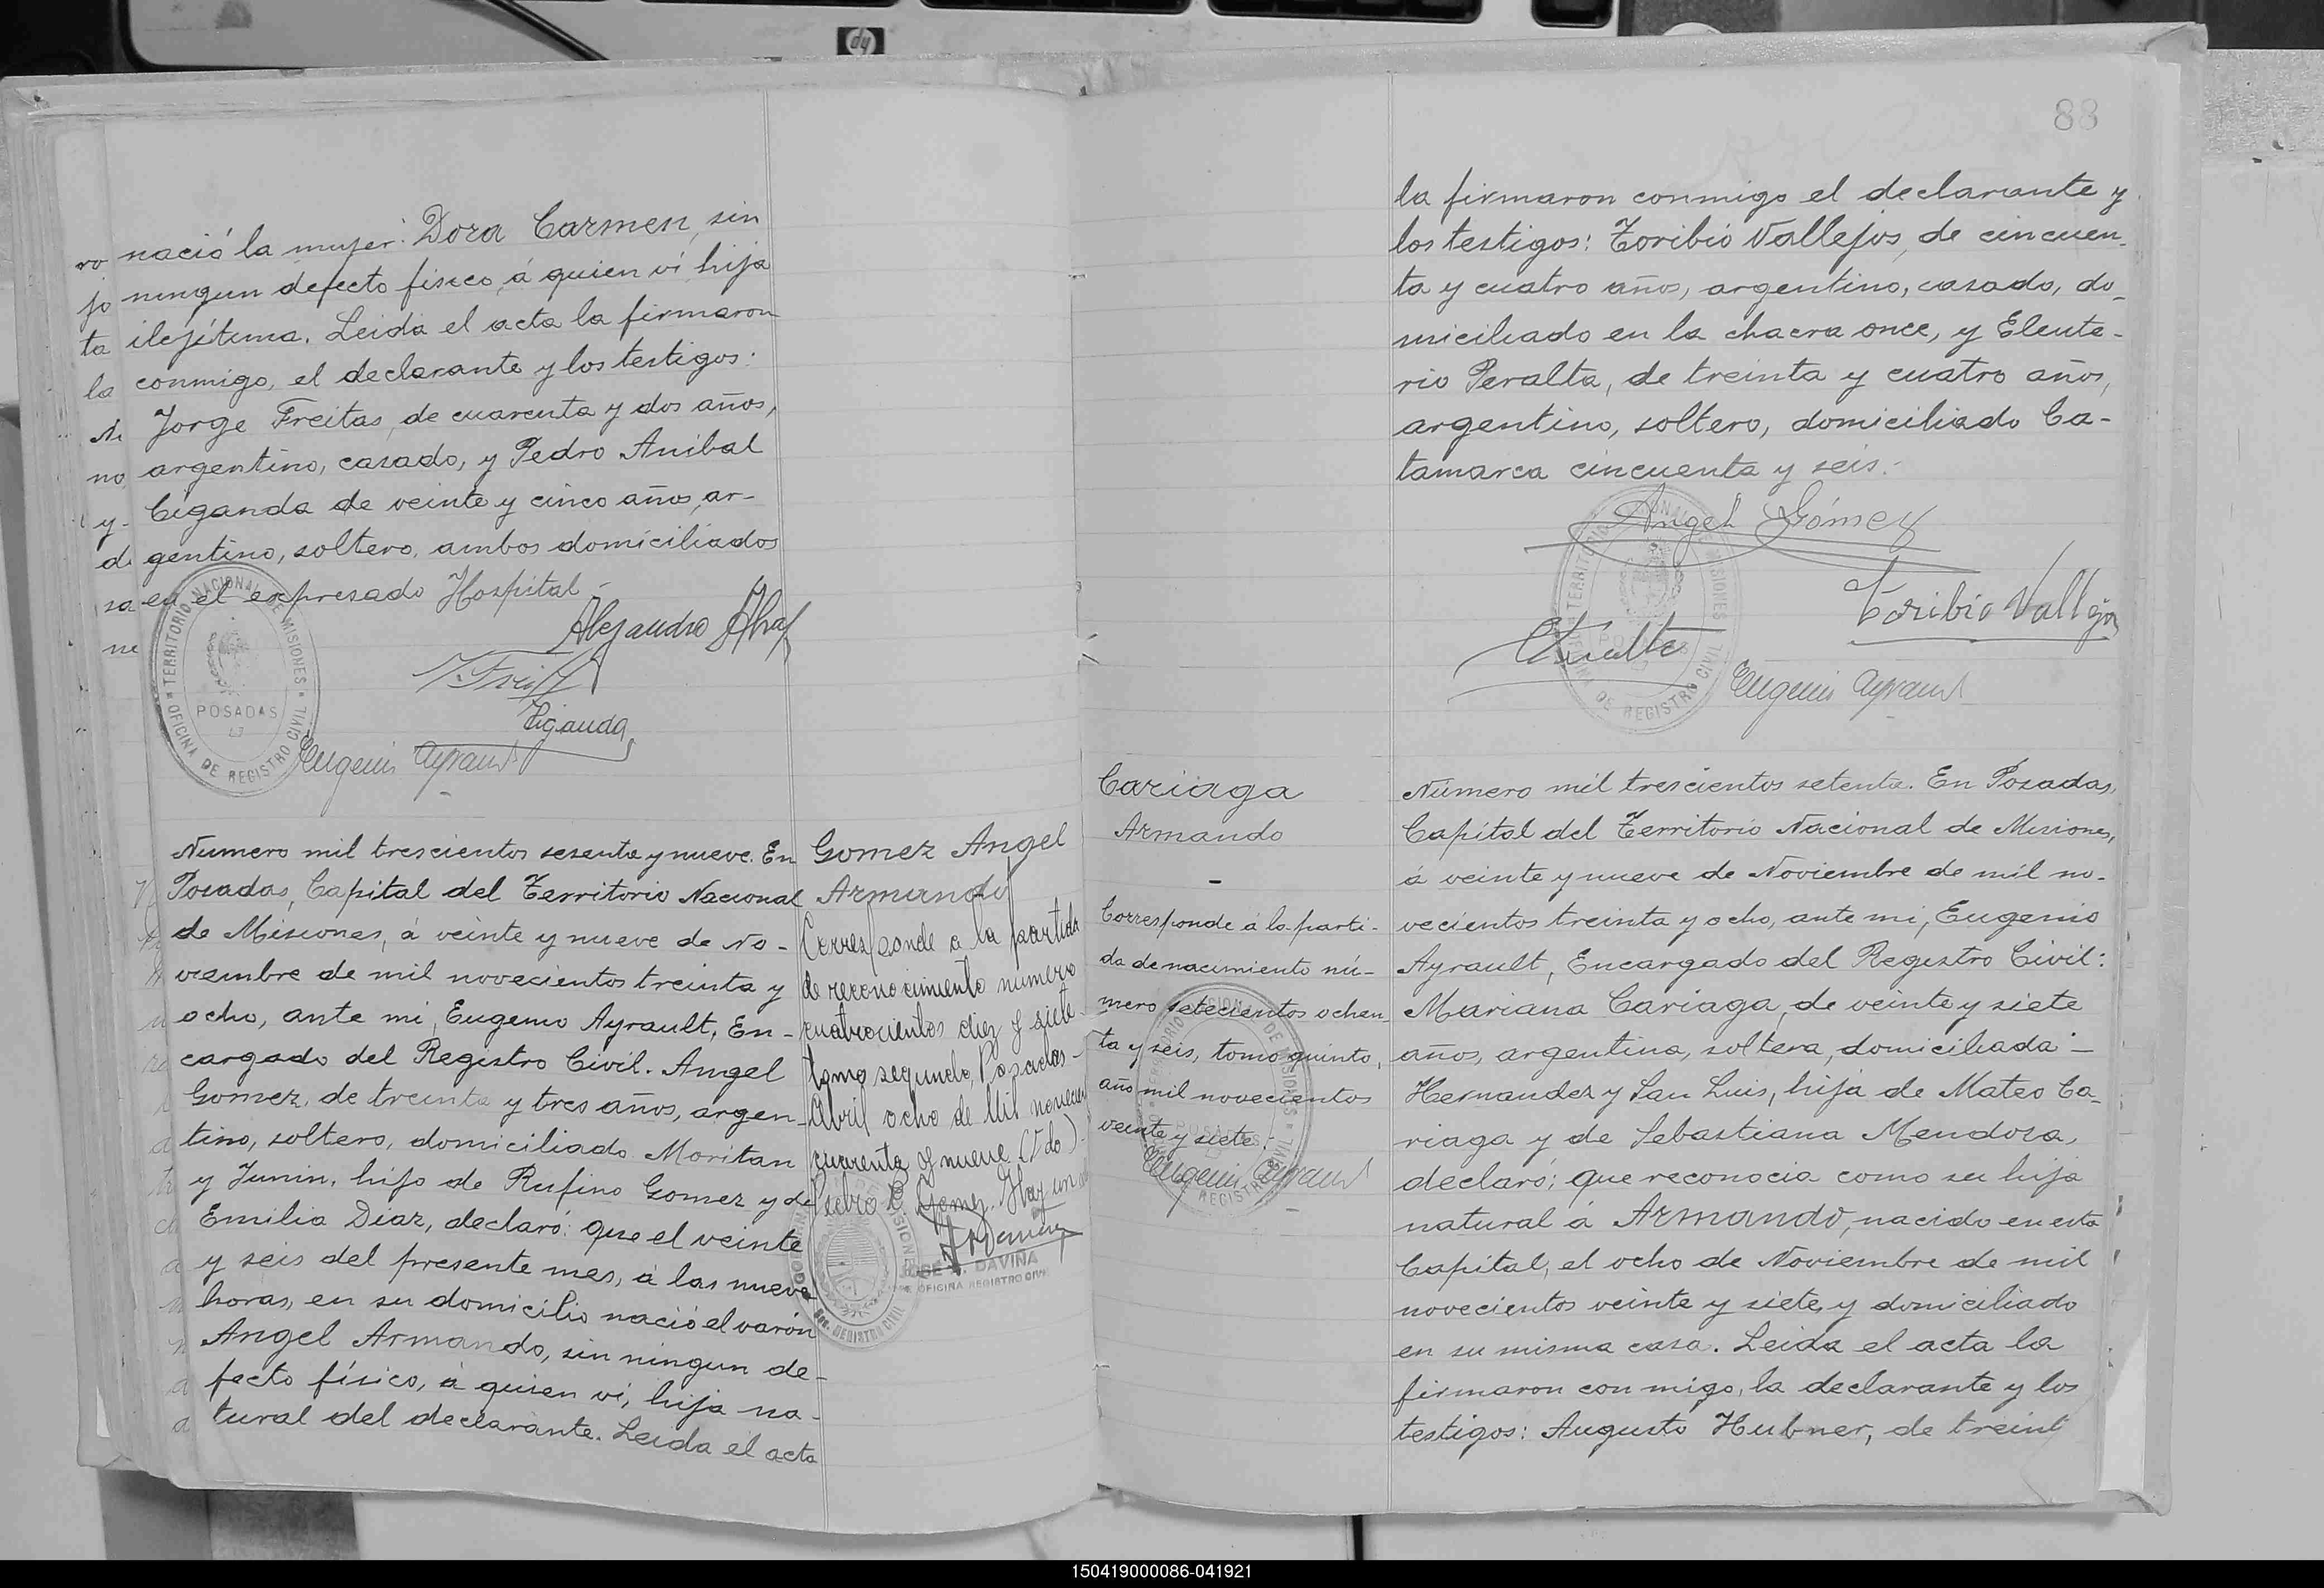 nació la mujer: Dora Carmen, sin
ningun defecto fisico, á quien ví hija
ilejítima. Leida el acta la firmaron
conmigo, el declarante y los testigos:
Jorge Freitas, de cuarenta y dos años,
argentino, casado, y Pedro Anibal
Ciganda de veinte y cinco años, ar-
gentino, soltero, ambos domiciliados
en el expresado Hospital.-
Alejandro
Ciganda
Eugenio Ayrault
TERRITORIO NACIONAL DE MISIONES
POSADAS
OFICINA DE REGISTRO CIVIL
Numero mil trescientos sesenta y nueve. En
Posadas, Capital del Territorio Nacional
de Misiones, á veinte y nueve de no-
viembre de mil novecientos treinta y
ocho, ante mi, Eugenio Ayrault, En-
cargado del Registro Civil. Angel
Gomez, de treinta y tres años, argen-
tino, soltero, domiciliado Moritan
y Junin, hijo de Rufino Gomez y de
Emilia Diaz, declaró: que el veinte
y seis del presente mes, á las nueve
horas, en su domicilio nació el varón
Angel Armando, sin ningun de-
fecto físico, á quien ví, hijo na-
tural del declarante. Leida el acta
Gomez Angel
Armando
Corresponde a la partida
de reconocimiento número
cuatrocientos diez y siete
tomo segundo, Posadas-
Abril ocho de Mil novecien
cuarenta y nueve (Fdo)
Pedro C. Gomez. Hay un
DAVIÑA
OFICINA REGISTRO CIVIL
88
la firmaron conmigo el declarante y
los testigos: Toribio Vallejos, de cincuen-
ta y cuatro años, argentino, casado, do-
miciliado en la chacra once, y Eleute-
rio Peralta, de treinta y cuatro años,
argentino, soltero, domiciliado Ca-
tamarca cincuenta y seis.-
Angel Gómez
Toribio Vallejos
Eugenio Ayrault
Cariaga
Armando
-
Corresponde á la parti-
da de nacimiento nú-
mero setecientos ochen-
ta y seis, tomo quinto,
año mil novecientos
veinte y siete.-
Eugenio Ayrault
Número mil trescientos setenta. En Posadas,
Capital del Territorio Nacional de Misiones,
á veinte y nueve de Noviembre de mil no-
vecientos treinta y ocho, ante mi, Eugenio
Ayrault, Encargado del Registro Civil:
Mariana Cariaga, de veinte y siete
años, argentina, soltera, domiciliada -
Hernandez y San Luis, hija de Mateo Ca-
riaga y de Sebastiana Mendoza,
declaró: que reconocia como su hijo
natural á Armando, nacido en esta
Capital, el ocho de Noviembre de mil
novecientos veinte y siete, y domiciliado
en su misma casa. Leida el acta la
firmaron conmigo, la declarante y los
testigos: Augusto Hubner, de treint
150419000086-041921